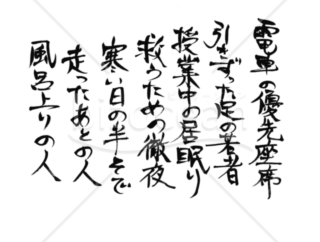 電車の優先座席
引きずった足の若者
授業中の居眠り
救うための徹夜
寒い日の半そで
走ったあとの人
風呂上りの人